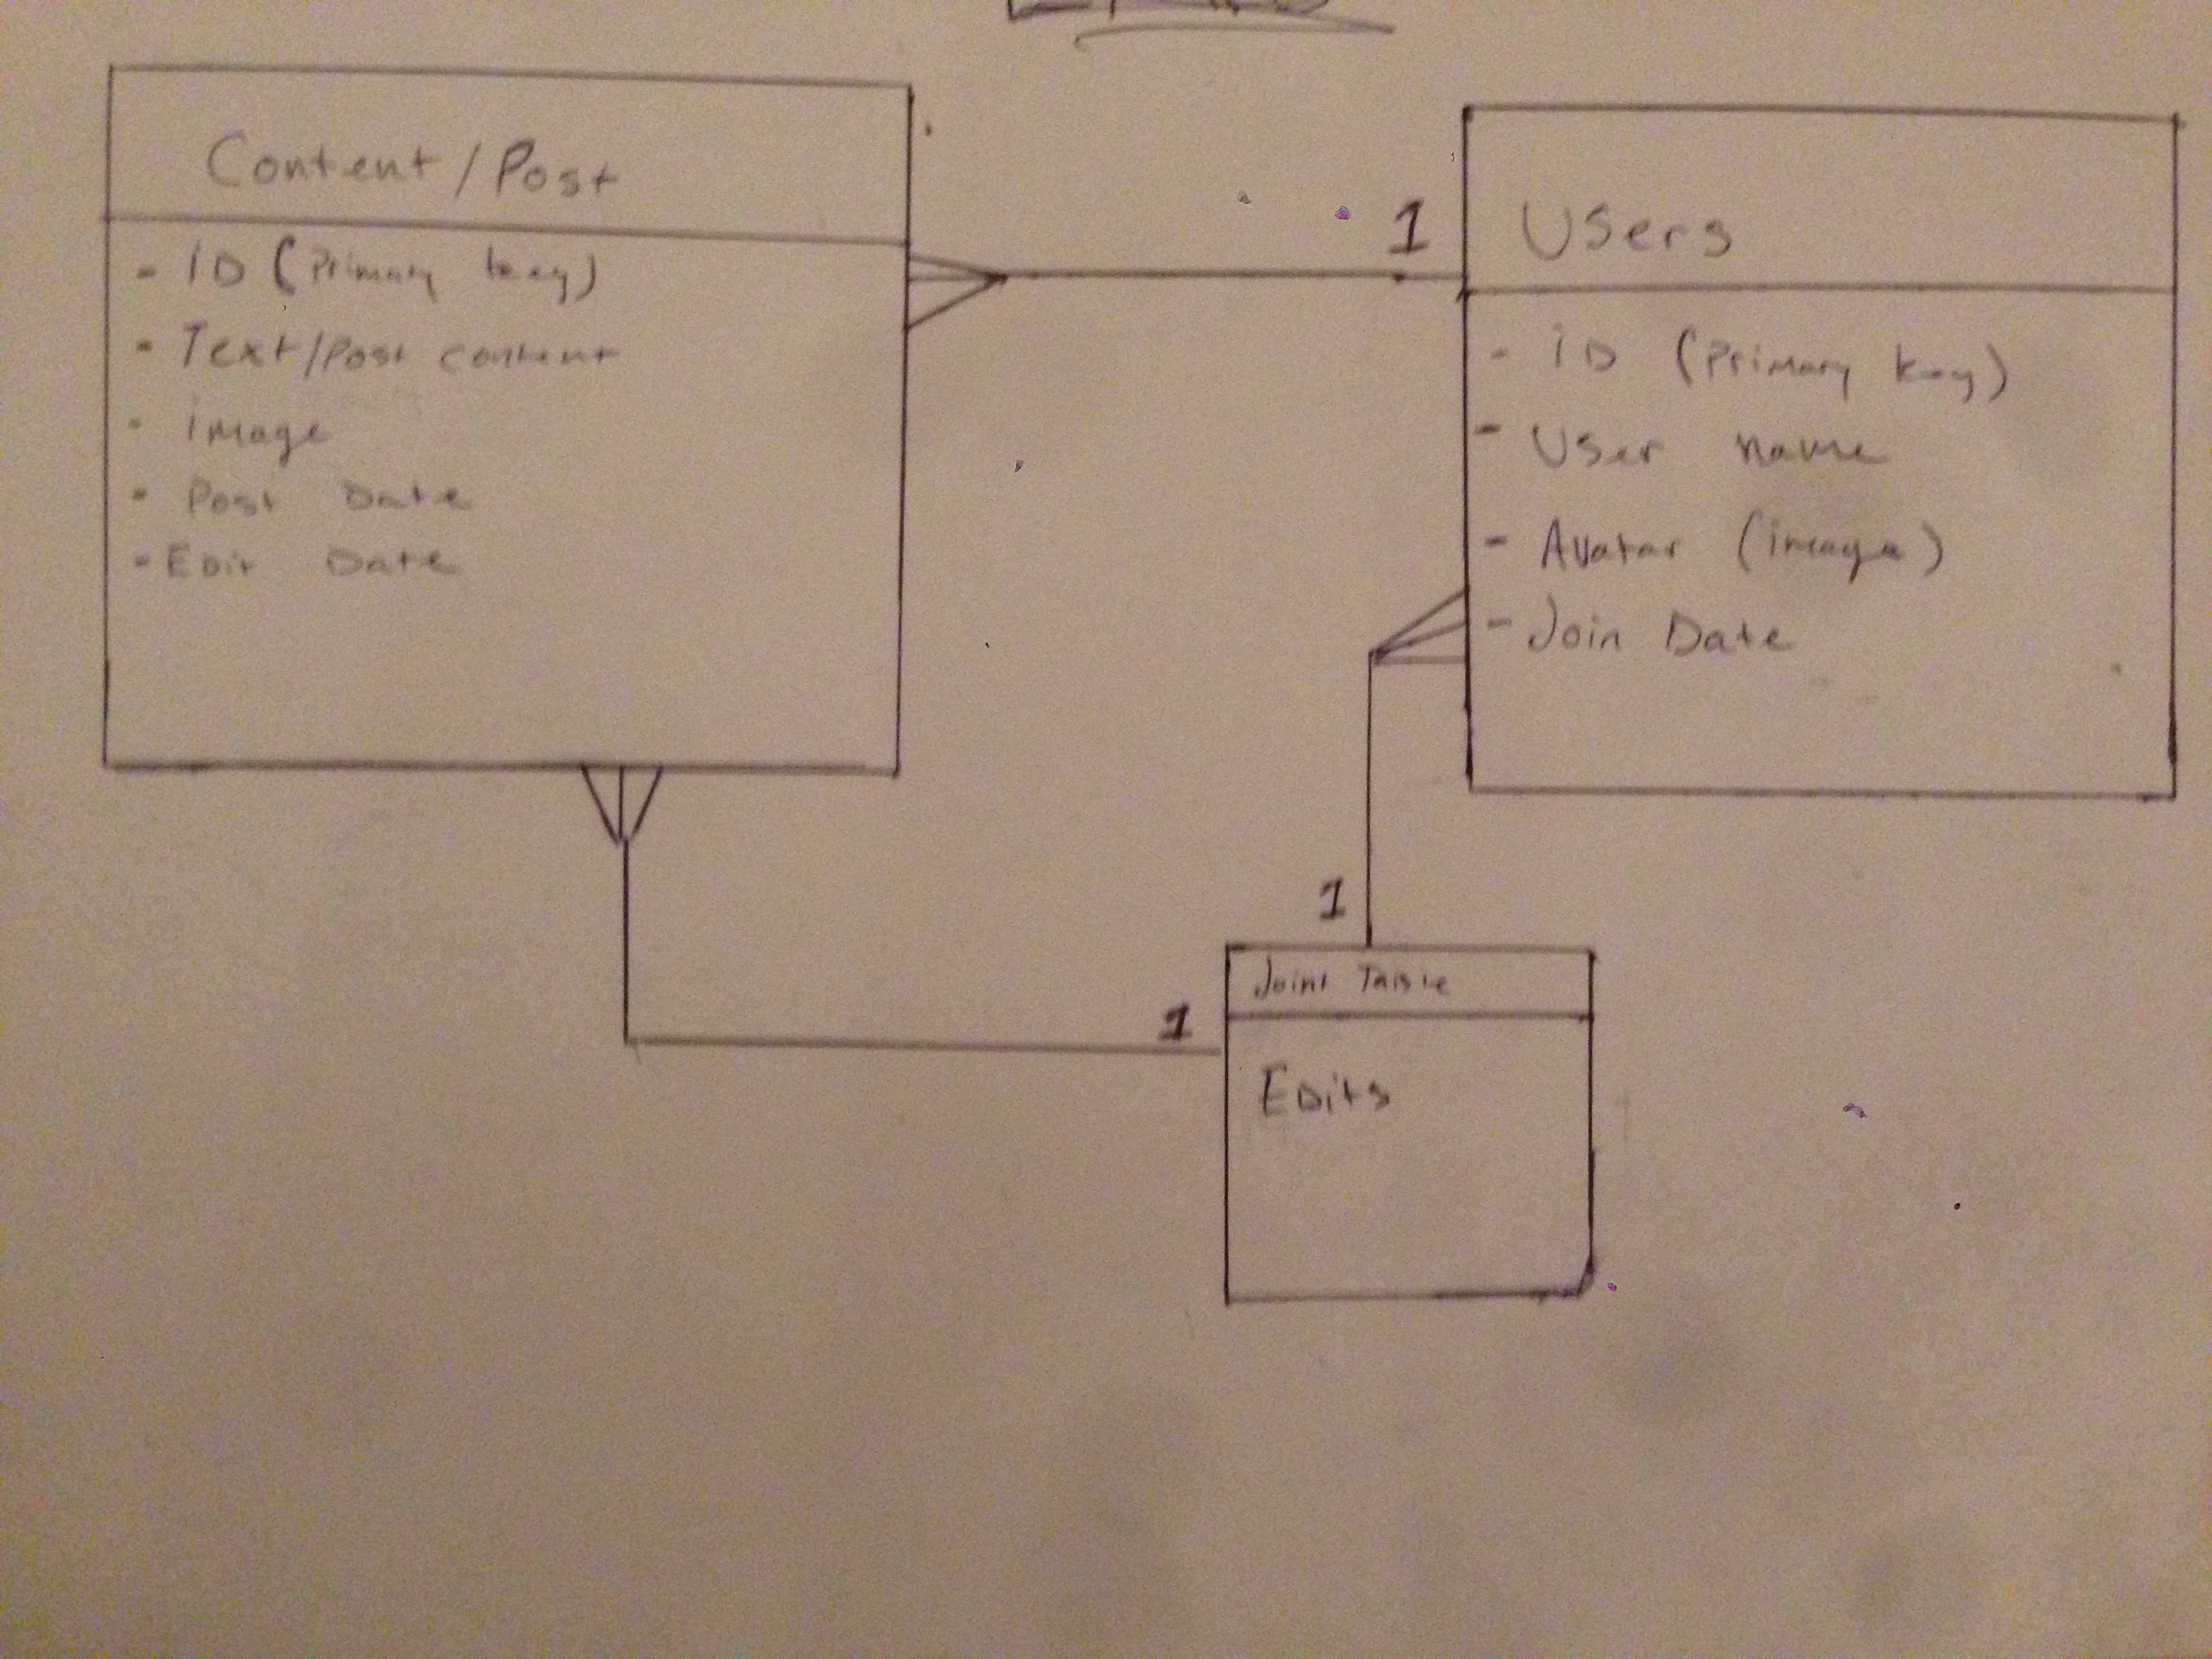 Content/Post
- ID (Primary key)
- Text/Post content
- image
- Post Date
- Edit Date
1
Users
- ID (Primary key)
- User name
- Avatar (image)
- Join Date
1
1
Joint Table
Edits